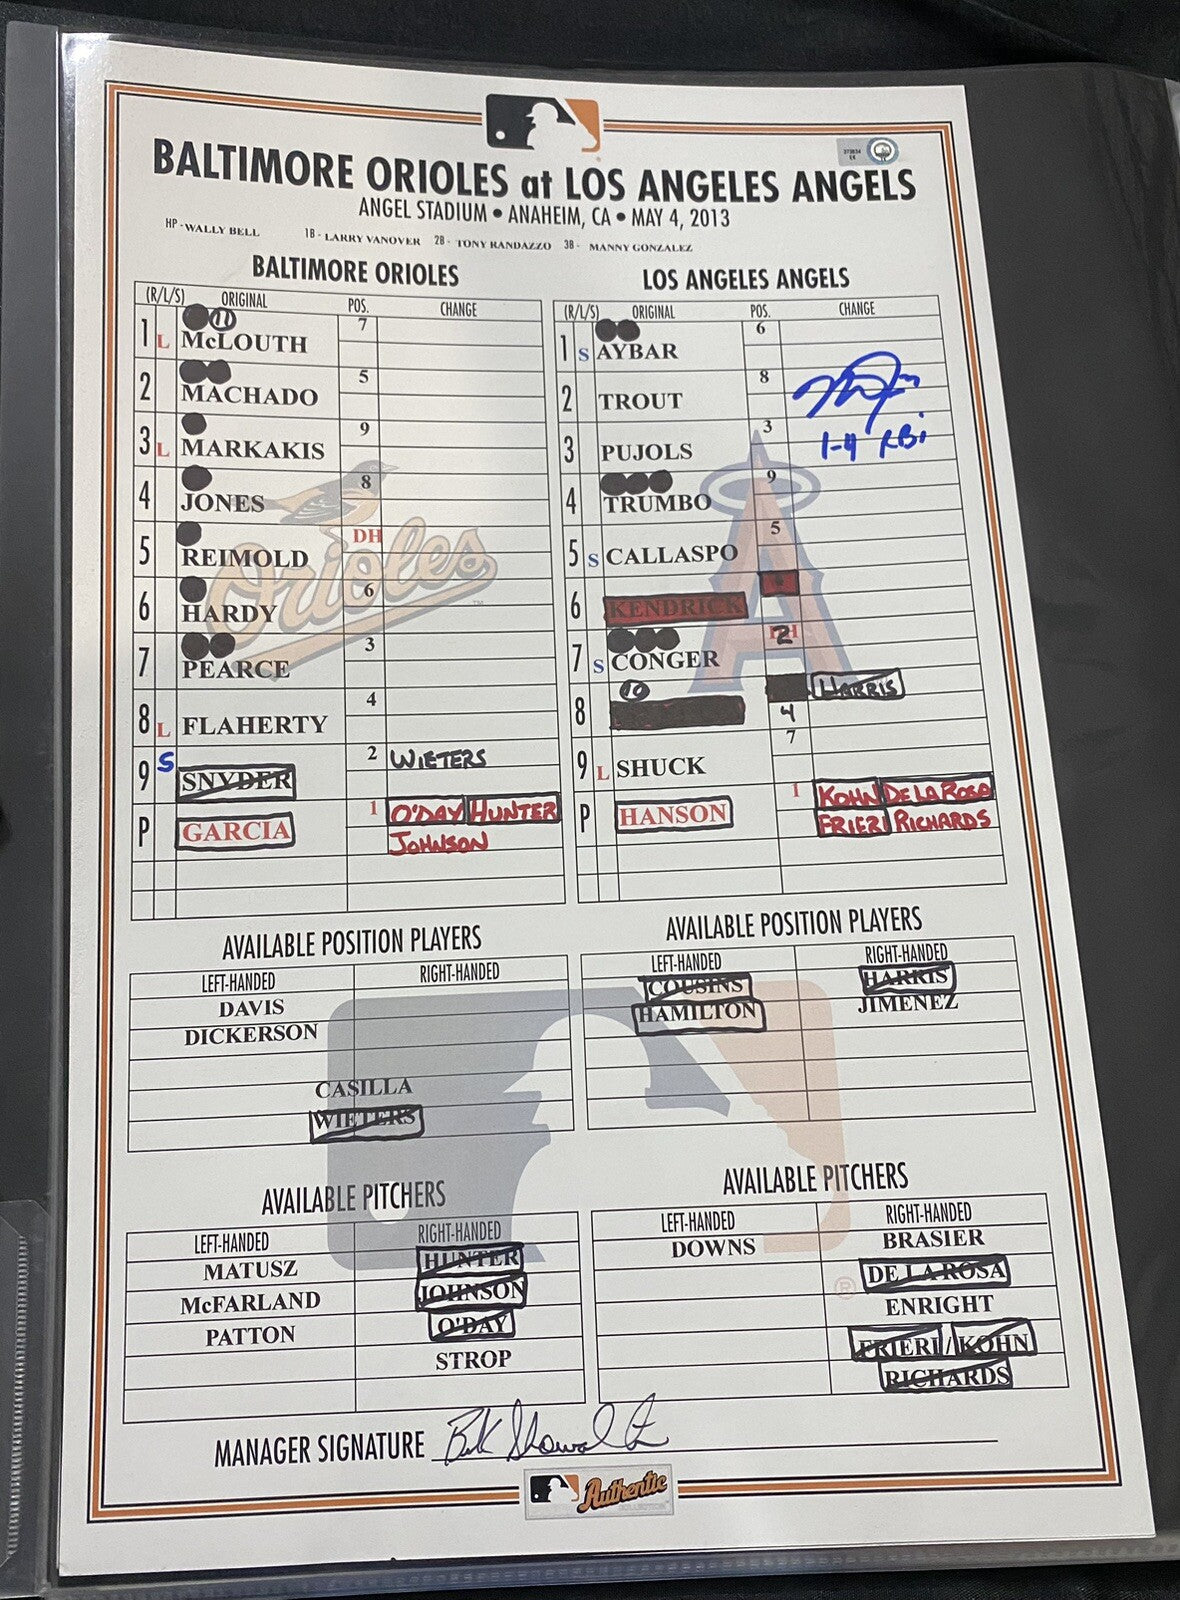 BALTIMORE ORIOLES at LOS ANGELES ANGELS
ANGEL STADIUM • ANAHEIM, CA • MAY 4, 2013
HP - WALLY BELL 1B - LARRY VANOVER 2B - TONY RANDAZZO 3B - MANNY GONZALEZ
BALTIMORE ORIOLES
(R/L/S) ORIGINAL POS. CHANGE
11
1 L McLOUTH 7
2 MACHADO 5
3 L MARKAKIS 9
4 JONES 8
5 REIMOLD DH
6 HARDY 6
7 PEARCE 3
8 L FLAHERTY 4
9 S SNYDER 2 WIETERS
P GARCIA 1 O'DAY HUNTER
JOHNSON
Orioles
LOS ANGELES ANGELS
(R/L/S) ORIGINAL POS. CHANGE
1 S AYBAR 6
2 TROUT 8
3 PUJOLS 3
1-4 RBi
4 TRUMBO 9
5 S CALLASPO 5
6 KENDRICK
7 S CONGER 2
10
8 4 HARRIS
9 L SHUCK 7
P HANSON 1 KOHN DE LA ROSA
FRIERI RICHARDS
AVAILABLE POSITION PLAYERS
LEFT-HANDED RIGHT-HANDED
DAVIS
DICKERSON
CASILLA
WIETERS
AVAILABLE POSITION PLAYERS
LEFT-HANDED RIGHT-HANDED
COUSINS HARRIS
HAMILTON JIMENEZ
AVAILABLE PITCHERS
LEFT-HANDED RIGHT-HANDED
MATUSZ HUNTER
McFARLAND JOHNSON
PATTON O'DAY
STROP
AVAILABLE PITCHERS
LEFT-HANDED RIGHT-HANDED
DOWNS BRASIER
DE LA ROSA
ENRIGHT
FRIERI / KOHN
RICHARDS
MANAGER SIGNATURE Buck Showalter
Authentic
COLLECTION